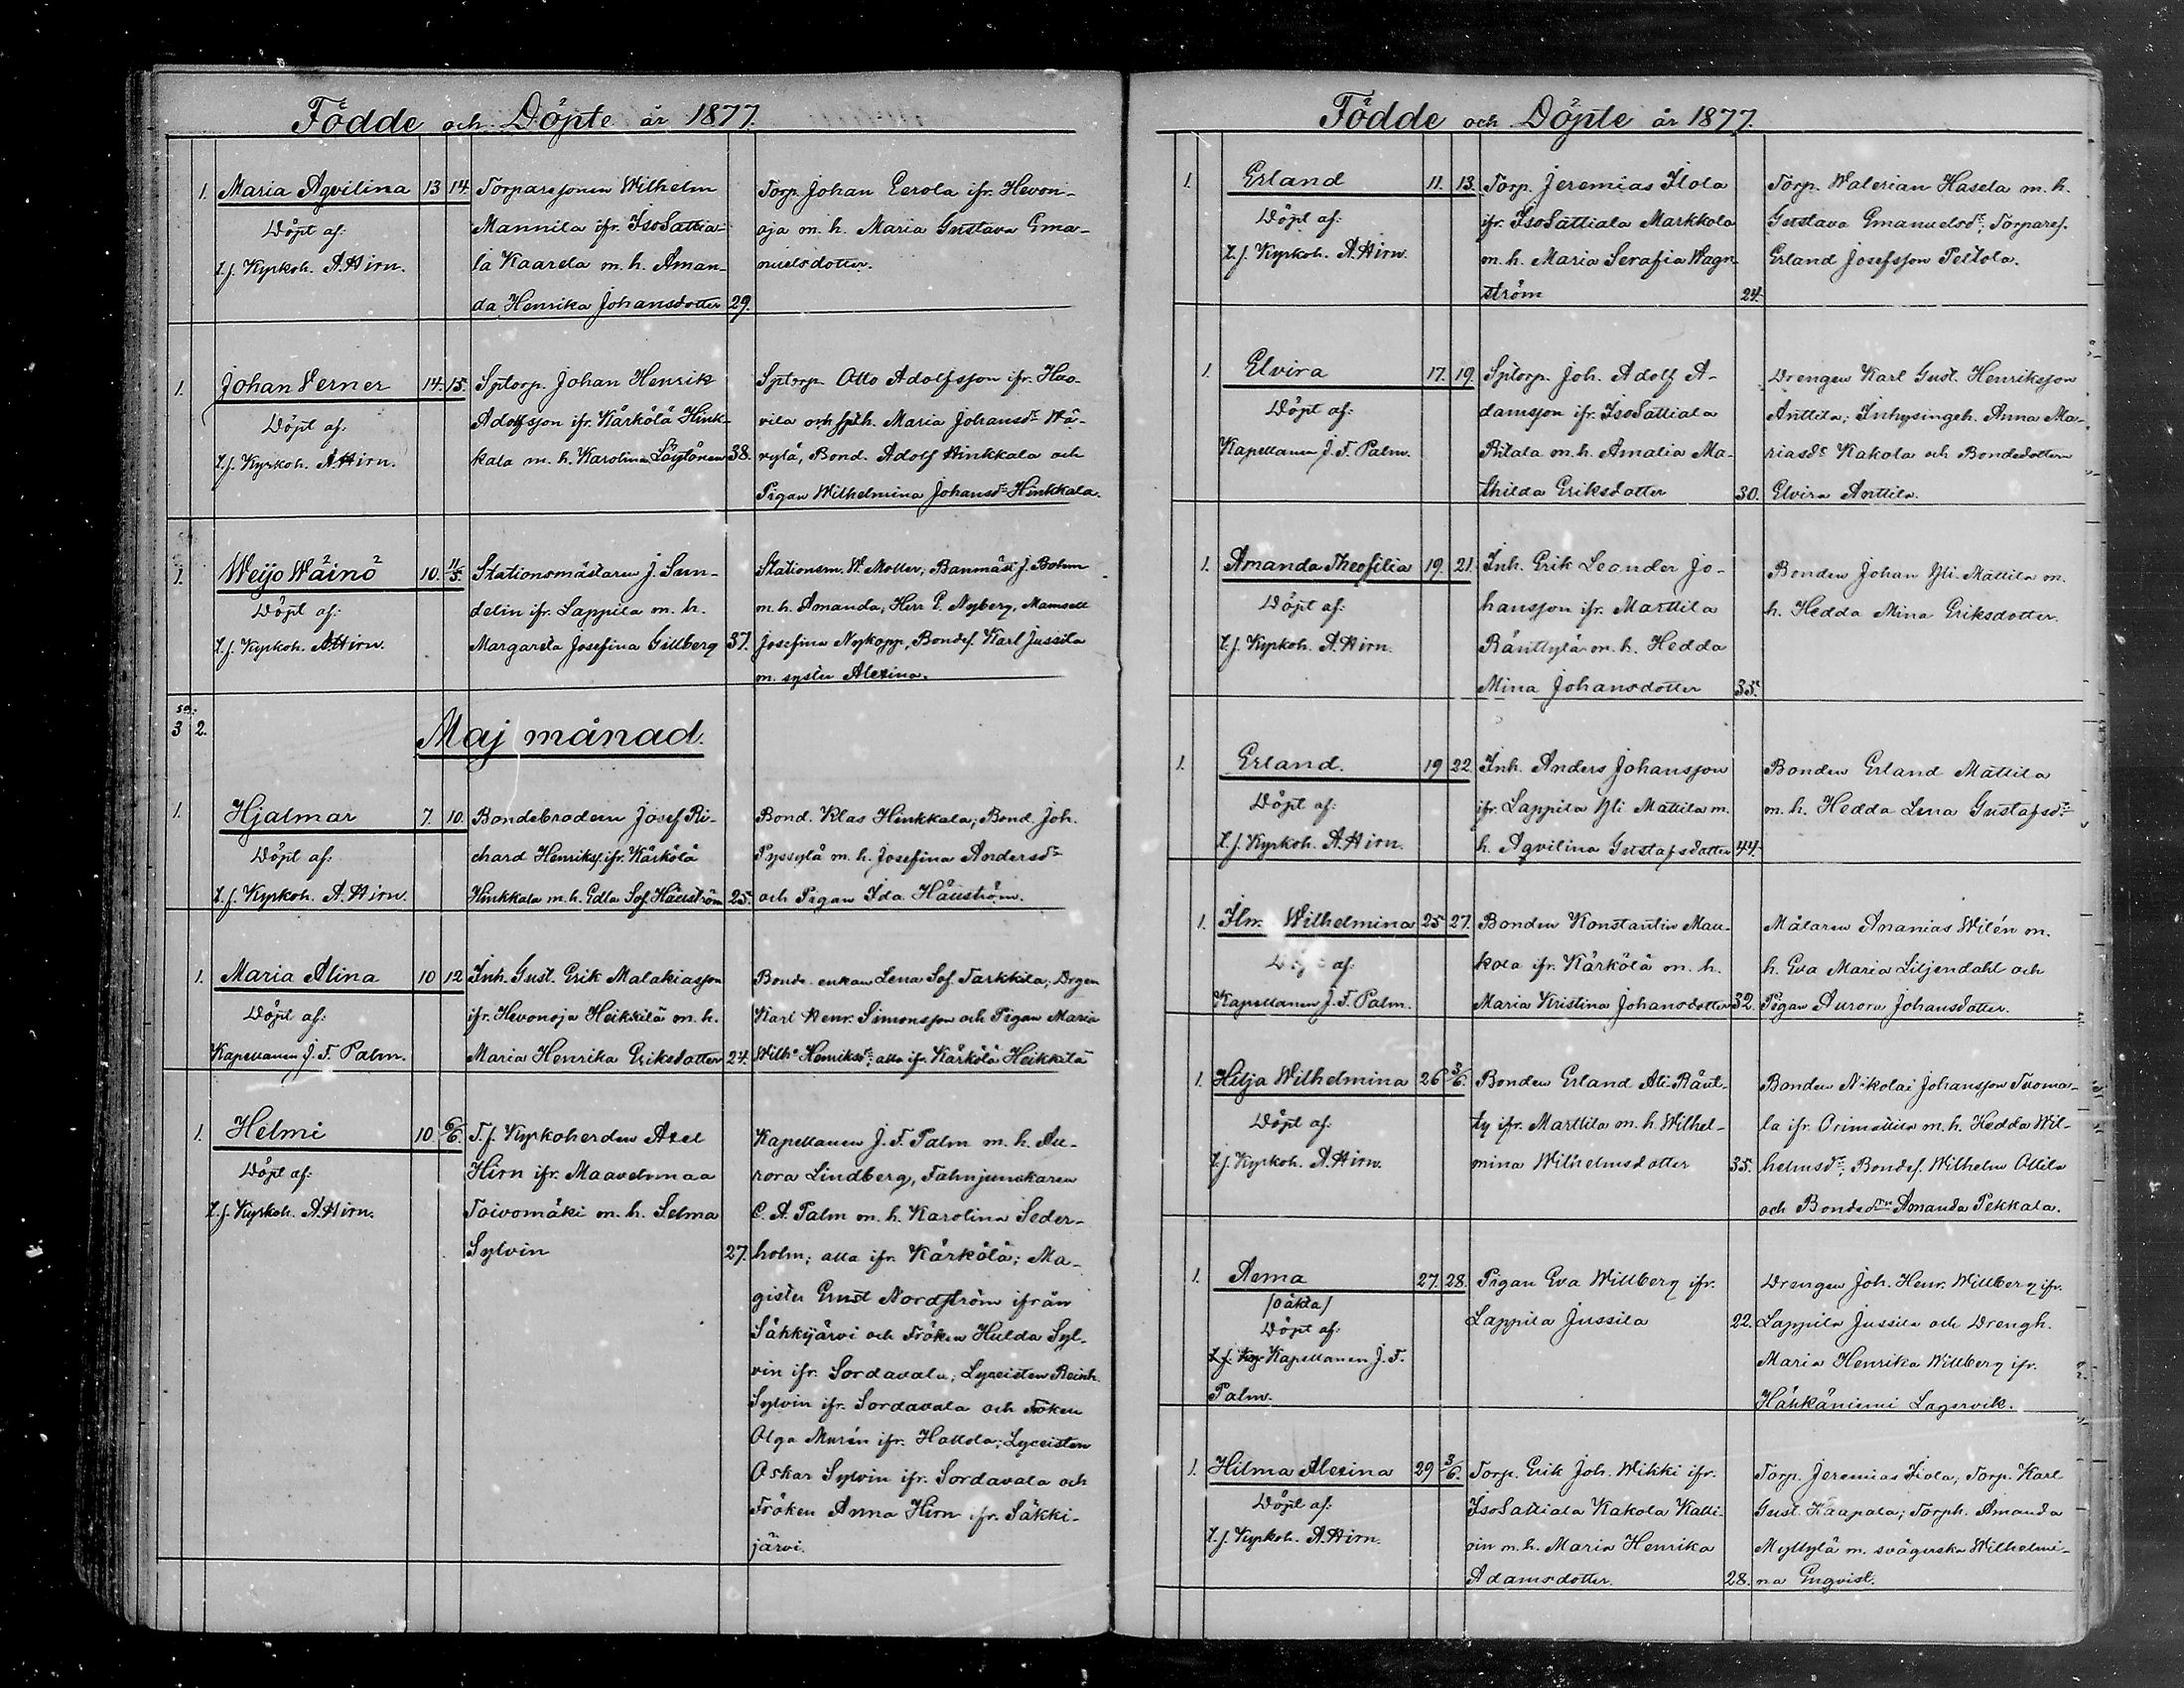 Födde och Döpte år 1877.
1. Maria Aqvilina 13 14. Torparesonen Wilhelm Torp. Johan Eerola ifr. Hevon-
Döpt af: Mannila ifr. IsoSattia- oja m. h. Maria Gustava Ema-
t. f. Kyrkoh. A. Hirn. la Kaarela m. h. Aman- nuelsdotter.
da Henrika Johansdotter 29.
1. Johan Verner 14. 15. Sptorp. Johan Henrik Sptorp. Otto Adolfsson ifr. Huo-
Döpt af: Adolfsson ifr. Kärkölä Hink- vila och Maria Johansdr Wä-
t. f. Kyrkoh. A. Hirn. kala m. h. Karolina Löytönen 38. rylä, Bond. Adolf Hinkkala och
Pigan Wilhelmina Johansdr Hinkkala.
1. Weijo Wäinö 10. 11/5. Stationsmästaren J. Sun- Stationsm. W. Moller; Banmäst J. Bohm
Döpt af: delin ifr. Lappila m. h. m. h. Amanda, Herr E. Nyberg, Mamsell
t. f. Kyrkoh. A. Hirn. Margareta Josefina Gillberg 37. Josefina Nykopp, Bondes. Karl Jussila
m. syster Alexina.
sa:
3 2. Maj månad.
1. Hjalmar 7. 10. Bondebrodern Josef Ri- Bond. Klas Hinkkala; Bond. Joh.
Döpt af: chard Henrikss. ifr. Kärkölä Pyssylä m. h. Josefina Andersdr
t. f. Kyrkoh. A. Hirn. Hinkkala m. h. Edla Sof. Hänström 25. och Pigan Ida Hänström.
1. Maria Alina 10 12 Inh. Gust. Erik Malakiasson Bonde enkan Lena Sof. Tarkkila; Drgen
Döpt af: ifr. Hevonoja Heikkilä m. h. Karl Henr. Simonsson och Pigan Maria
Kapellanen J. F. Palm. Maria Henrika Eriksdotter 24. Wilh. Henriksdr; alla ifr. Kärkölä Heikkilä
1. Helmi 10. 6/6. T. f. Kyrkoherden Axel Kapellanen J. F. Palm m. h. Au-
Döpt af: Hirn ifr. Maavehmaa rora Lindberg, Fahnjunkaren
t. f. Kyrkoh. A. Hirn. Toivomäki m. h. Selma C. A. Palm m. h. Karolina Seder-
Sylvin 27. holm; alla ifr. Kärkölä; Ma-
gister Ernst Nordström ifrån
Säkkijärvi och Fröken Hulda Syl-
vin ifr. Sordavala; Lyceisten Reinh.
Sylvin ifr. Sordavala och Fröken
Olga Murén ifr. Hollola; Lyceisten
Oskar Sylvin ifr. Sordavala och
Fröken Anna Hirn ifr. Säkki-
järvi.
Födde och Döpte år 1877.
1. Erland 11. 13. Torp. Jeremias Ilola Torp. Walerian Hasela m. h.
Döpt af: ifr. IsoSattiala Markkola Gustava Emanuelsdr; Torpares.
t. f. Kyrkoh. A. Hirn. m. h. Maria Serafia Wagn- Erland Josefsson Peltola.
ström 24.
1. Elvira 17. 19. Sptorp. Joh. Adolf A- Drengen Karl Gust. Henriksson
Döpt af: damsson ifr. IsoSattiala Anttila; Inhysingeh. Anna Ma-
Kapellanen J. F. Palm. Ritala m. h. Amalia Ma- riasdr Kakola och Bondedottern
thilda Eriksdotter 30. Elvira Anttila.
1. Amanda Theofilia 19. 21. Inh. Erik Leander Jo- Bonden Johan Yli Mattila m.
Döpt af: hansson ifr. Marttila h. Hedda Mina Eriksdotter.
t. f. Kyrkoh. A. Hirn. Ränttylä m. h. Hedda
Mina Johansdotter 35.
1. Erland. 19 22. Inh. Anders Johansson Bonden Erland Mattila
Döpt af: ifr. Lappila Yli Mattila m. m. h. Hedda Lena Gustafsdr
t. f. Kyrkoh. A. Hirn. h. Aqvilina Gustafsdotter 44.
1. Wilhelmina 25 27. Bonden Konstantin Mau- Målaren Ananias Wilén m.
Döpt af: kola ifr. Kärkölä m. h. h. Eva Maria Liljendahl och
Kapellanen J. F. Palm. Maria Kristina Johansdotter 32. Pigan Aurora Johansdotter.
1. Hilja Wilhelmina 26 3/6. Bonden Erland Ali-Ränt- Bonden Nikolai Johansson Tuoma-
Döpt af: ty ifr. Marttila m. h. Wilhel- la ifr. Orimattila m. h. Hedda Wil-
t. f. Kyrkoh. A. Hirn. mina Wilhelmsdotter 35. helmsdr; Bondes. Wilhelm Ollila
och Bonde Amanda Pekkala.
1. Aema 27. 28. Pigan Eva Willberg ifr. Drengen Joh. Henr. Willberg ifr.
/oäkta/ Lappila Jussila 22. Lappila Jussila och Drengh.
Döpt af: Maria Henrika Willberg ifr.
Kapellanen J. F. Hähkäniemi Lagervik.
Palm.
1. Hilma Alexina 29 3/6. Torp. Erik Joh. Wihki ifr. Torp. Jeremias Ilola; Torp. Karl
Döpt af: IsoSattiala Kakola Kalli- Gust. Haapala; Torph. Amanda
t. f. Kyrkoh. A. Hirn. oin m. h. Maria Henrika Myllylä m. svägerska Wilhelmi-
Adamsdotter. 28. na Enqvist.